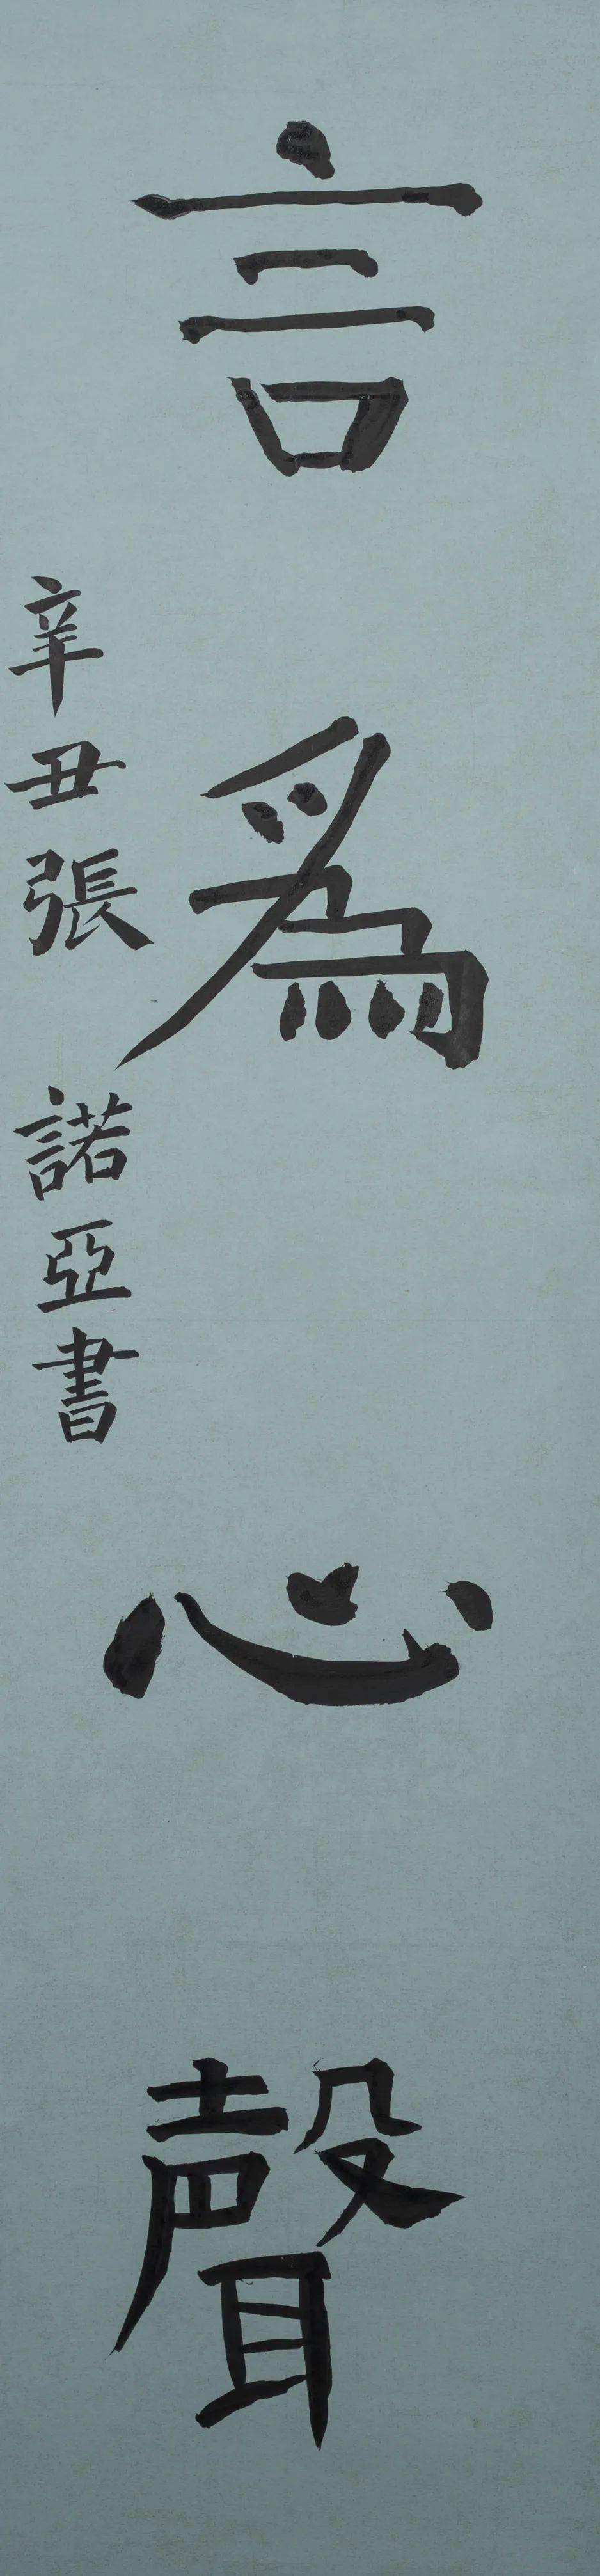 言為心聲
辛丑張諾亞書